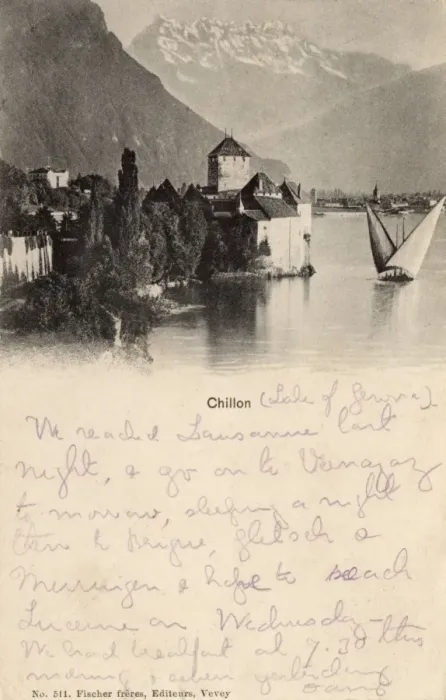 Chillon (Lake of Geneva).
We reached Lausanne last
night, & go on to Vernayaz
to morrow, sleeping a night
then to Brigue, Gletsch &
Meiringen & hope to reach
Lucerne on Wednesday –
We had breakfast at 7.30 this
morning, &
No. 511. Fischer frères, Editeurs, Vevey